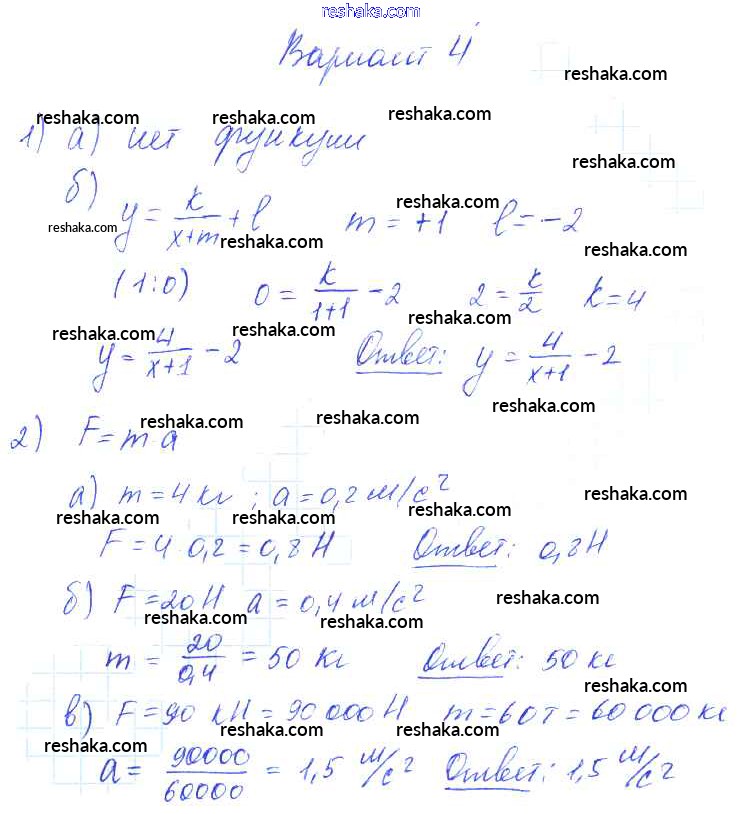 reshaka.com
Вариант 4
reshaka.com
reshaka.com reshaka.com reshaka.com
1) а) нет функции
reshaka.com
б)
reshaka.com
y = k/(x+m) + l m = +1 l = -2
reshaka.com reshaka.com
reshaka.com
(1:0) 0 = k/(1+1) - 2 2 = k/2 k = 4
reshaka.com reshaka.com reshaka.com
y = 4/(x+1) - 2 Ответ: y = 4/(x+1) - 2
reshaka.com reshaka.com reshaka.com
2) F = m a
reshaka.com
а) m = 4 кг ; a = 0,2 м/с²
reshaka.com reshaka.com reshaka.com
F = 4 · 0,2 = 0,8 Н Ответ: 0,8 Н
reshaka.com
б) F = 20 Н a = 0,4 м/с²
reshaka.com reshaka.com
m = 20/0,4 = 50 кг Ответ: 50 кг
reshaka.com
в) F = 90 кН = 90 000 Н m = 60 т = 60 000 кг
reshaka.com reshaka.com reshaka.com
a = 90000/60000 = 1,5 м/с² Ответ: 1,5 м/с²
reshaka.com reshaka.com reshaka.com